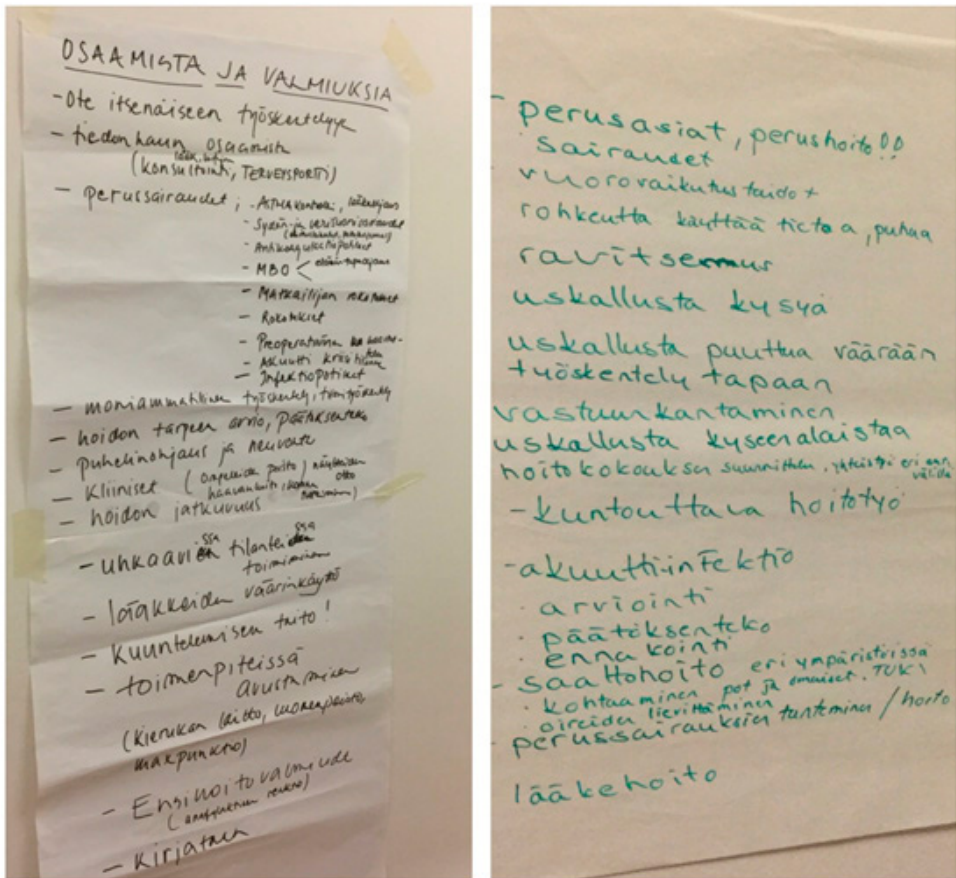 OSAAMISTA JA VALMIUKSIA
- Ote itsenäiseen työskentelyyn
- tiedonhaun osaamista
(konsultointi, TERVEYSPORTTI)
- perussairaudet ;
- MBO <
- Matkailijan rokotukset
- Rokotukset
- Preoperatiivinen
- Akuutti
- Infektiopotilaat
- moniammatillinen työskentely, tiimityöskentely
- hoidon tarpeen arvio, päätöksenteko
- Puhelinohjaus ja neuvonta
- Kliiniset (ompeleiden poisto, näytteiden otto
haavanhoito, korvan
- hoidon jatkuvuus
- uhkaavissa tilanteissa
toimiminen
- lääkkeiden väärinkäyttö
- Kuuntelemisen taito!
- toimenpiteissä
avustaminen
(kierukan laitto, luomenpoisto,
- Ensihoitovalmiude
- Kirjaaminen
- perusasiat, perushoito!!
sairaudet
- vuorovaikutustaido+
rohkeutta käyttää tietoa, puhua
ravitsemus
uskallusta kysyä
uskallusta puuttua väärään
työskentely tapaan
vastuunkantaminen
uskallusta kyseenalaistaa
hoitokokouksen suunnittelu, yhteistyö eri amm
välillä
- kuntouttava hoitotyö
- akuutti-infektio
· arviointi
· päätöksenteko
· ennakointi
- saattohoito eri ympäristöissä
· kohtaaminen pot ja omaiset, TUKI
· oireiden lievittäminen
perussairauksien tunteminen / hoito
lääkehoito